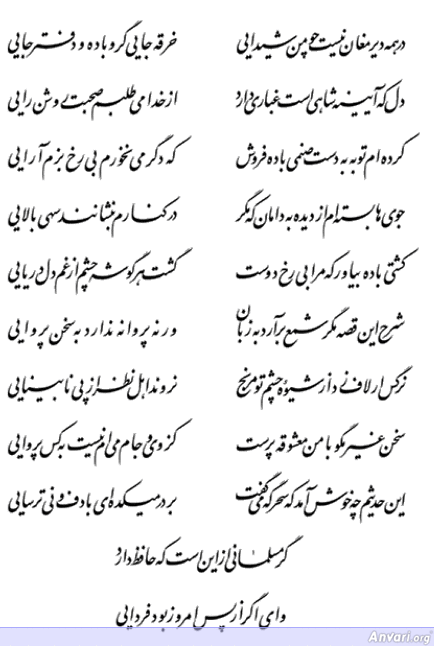 در همه دیر مغان نیست چو من شیدایی خرقه جایی گرو باده و دفتر جایی
دل که آیینه شاهی است غباری دارد از خدا می طلبم صحبت روشن رایی
کرده ام توبه به دست صنمی باده فروش که دگر می نخورم بی رخ بزم آرایی
جوی ها بسته ام از دیده به دامان که مگر در کنارم بنشانند سهی بالایی
کشتی باده بیاور که مرا بی رخ دوست گشت هر گوشه چشم از غم دل دریایی
شرح این قصه مگر شمع برآرد به زبان ور نه پروانه ندارد به سخن پروایی
نرگس ار لاف زد از شیوه چشم تو مرنج نروند اهل نظر از پی نابینایی
سخن غیر مگو با من معشوقه پرست کز وی و جام می ام نیست به کس پروایی
این حدیثم چه خوش آمد که سحرگه می گفت بر در میکده ای با دف و نی ترسایی
گر مسلمانی از این است که حافظ دارد
وای اگر از پس امروز بود فردایی
Anvari.org